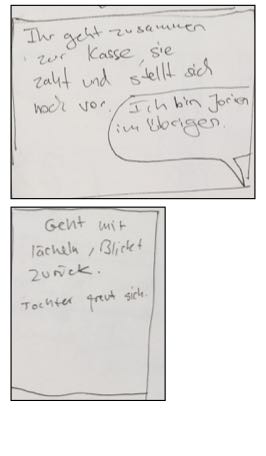 Ihr geht zusammen
zur Kasse, sie
zahlt und stellt sich
noch vor.
Ich bin Jorien
im Übrigen.
Geht mit
lächeln, Blickt
zurück.
Tochter freut sich.